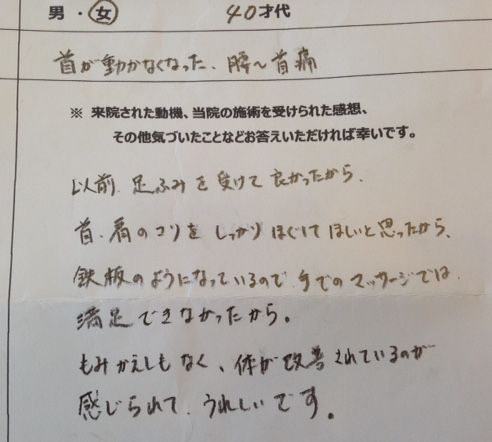 男・女 40才代
首が動かなくなった、腰〜首痛
※ 来院された動機、当院の施術を受けられた感想、
その他気づいたことなどお答えいただければ幸いです。
以前、足ふみを受けて良かったから、
首、肩のコリをしっかりほぐしてほしいと思ったから、
鉄板のようになっているので、手でのマッサージでは
満足できなかったから。
もみかえしもなく、体が改善されているのが
感じられて、うれしいです。